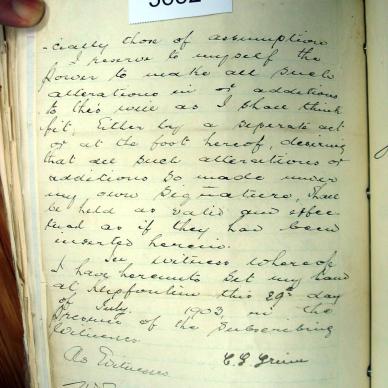 -cially those of assumption
I reserve to myself the
power to make all such
alterations in or additions
to this will as I shall think
fit, Either by a seperate act
or at the foot hereof, desiring
that all such alterations or
additions so made under
my own Signature, shall
be held as valid and effec
tual as if they had been
inserted herein.
In witness whereof
I have hereunto set my hand
at this 29th day
of July 1903, in the
presence of the Subscribing
Witnesses
As Witnesses